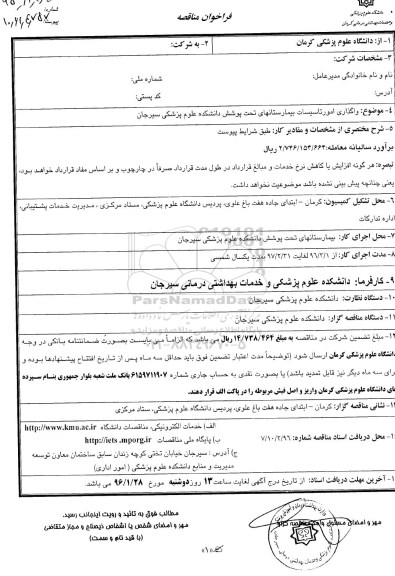 دانشگاه علوم پزشکی
و خدمات بهداشتی درمانی کرمان
فراخوان مناقصه
شماره:
پیوست:
۱- از: دانشگاه علوم پزشکی کرمان
۲- به شرکت:
۳- مشخصات شرکت:
نام و نام خانوادگی مدیرعامل:
شماره ملی:
آدرس:
کد پستی:
۴- موضوع: واگذاری امورتاسیسات بیمارستانهای تحت پوشش دانشکده علوم پزشکی سیرجان
۵- شرح مختصری از مشخصات و مقادیر کار: طبق شرایط پیوست
برآورد سالیانه معامله: ۲/۷۳۶/۱۵۳/۶۶۳ ریال
تبصره: هر گونه افزایش یا کاهش نرخ خدمات و مبالغ قرارداد در طول مدت قرارداد صرفاً در چارچوب و بر اساس مفاد قرارداد خواهد بود،
یعنی چنانچه پیش بینی نشده باشد موضوعیت نخواهد داشت.
۶- محل تشکیل کمیسیون: کرمان – ابتدای جاده هفت باغ علوی، پردیس دانشگاه علوم پزشکی، ستاد مرکزی ، مدیریت خدمات پشتیبانی،
اداره تدارکات
۷- محل اجرای کار: بیمارستانهای تحت پوشش دانشکده علوم پزشکی سیرجان
۸- مدت اجرای کار: از ۹۶/۳/۱ لغایت ۹۷/۲/۳۱ مدت یکسال شمسی
۹- کارفرما: دانشکده علوم پزشکی و خدمات بهداشتی درمانی سیرجان
۱۰- دستگاه نظارت: دانشکده علوم پزشکی سیرجان
۱۱- دستگاه مناقصه گزار: دانشکده علوم پزشکی سیرجان
۱۲- مبلغ تضمین شرکت در مناقصه به مبلغ ۱۴/۷۳۸/۴۶۳ ریال می باشد که الزاماً می بایست بصورت ضمانتنامه بانکی در وجه
دانشگاه علوم پزشکی کرمان ارسال شود (توضیحاً مدت اعتبار تضمین فوق باید حداقل سه ماه پس از تاریخ افتتاح پیشنهادها بوده و
برای سه ماه دیگر نیز قابل تمدید باشد) یا بصورت نقدی به حساب جاری شماره ۶۱۵۹۷۱۱۹۰۷ بانک ملت شعبه بلوار جمهوری بنام سپرده
های دانشگاه علوم پزشکی کرمان واریز و اصل فیش مربوطه را در پاکت الف قرار دهند.
نشانی مناقصه گزار: کرمان – ابتدای جاده هفت باغ علوی، پردیس دانشگاه علوم پزشکی، ستاد مرکزی
محل دریافت اسناد مناقصه شماره: ۷/۱۰/۲/۹۶
الف) خدمات الکترونیکی، مناقصات دانشگاه http://www.kmu.ac.ir
ب) پایگاه ملی مناقصات http://iets.mporg.ir
ج) آدرس : سیرجان خیابان تختی کوچه زندان سابق ساختمان معاون توسعه
مدیریت و منابع دانشکده علوم پزشکی ( امور اداری)
آخرین مهلت دریافت اسناد: از تاریخ درج آگهی لغایت ساعت ۱۳ روز دوشنبه مورخ ۹۶/۱/۲۸ می باشد.
مطالب فوق به تائید و رویت اینجانب رسید.
مهر و امضای شخص یا اشخاص ذیصلاح و مجاز متقاضی
(با قید نام و سمت)
مهر و امضای مسئول
ParsNamadData